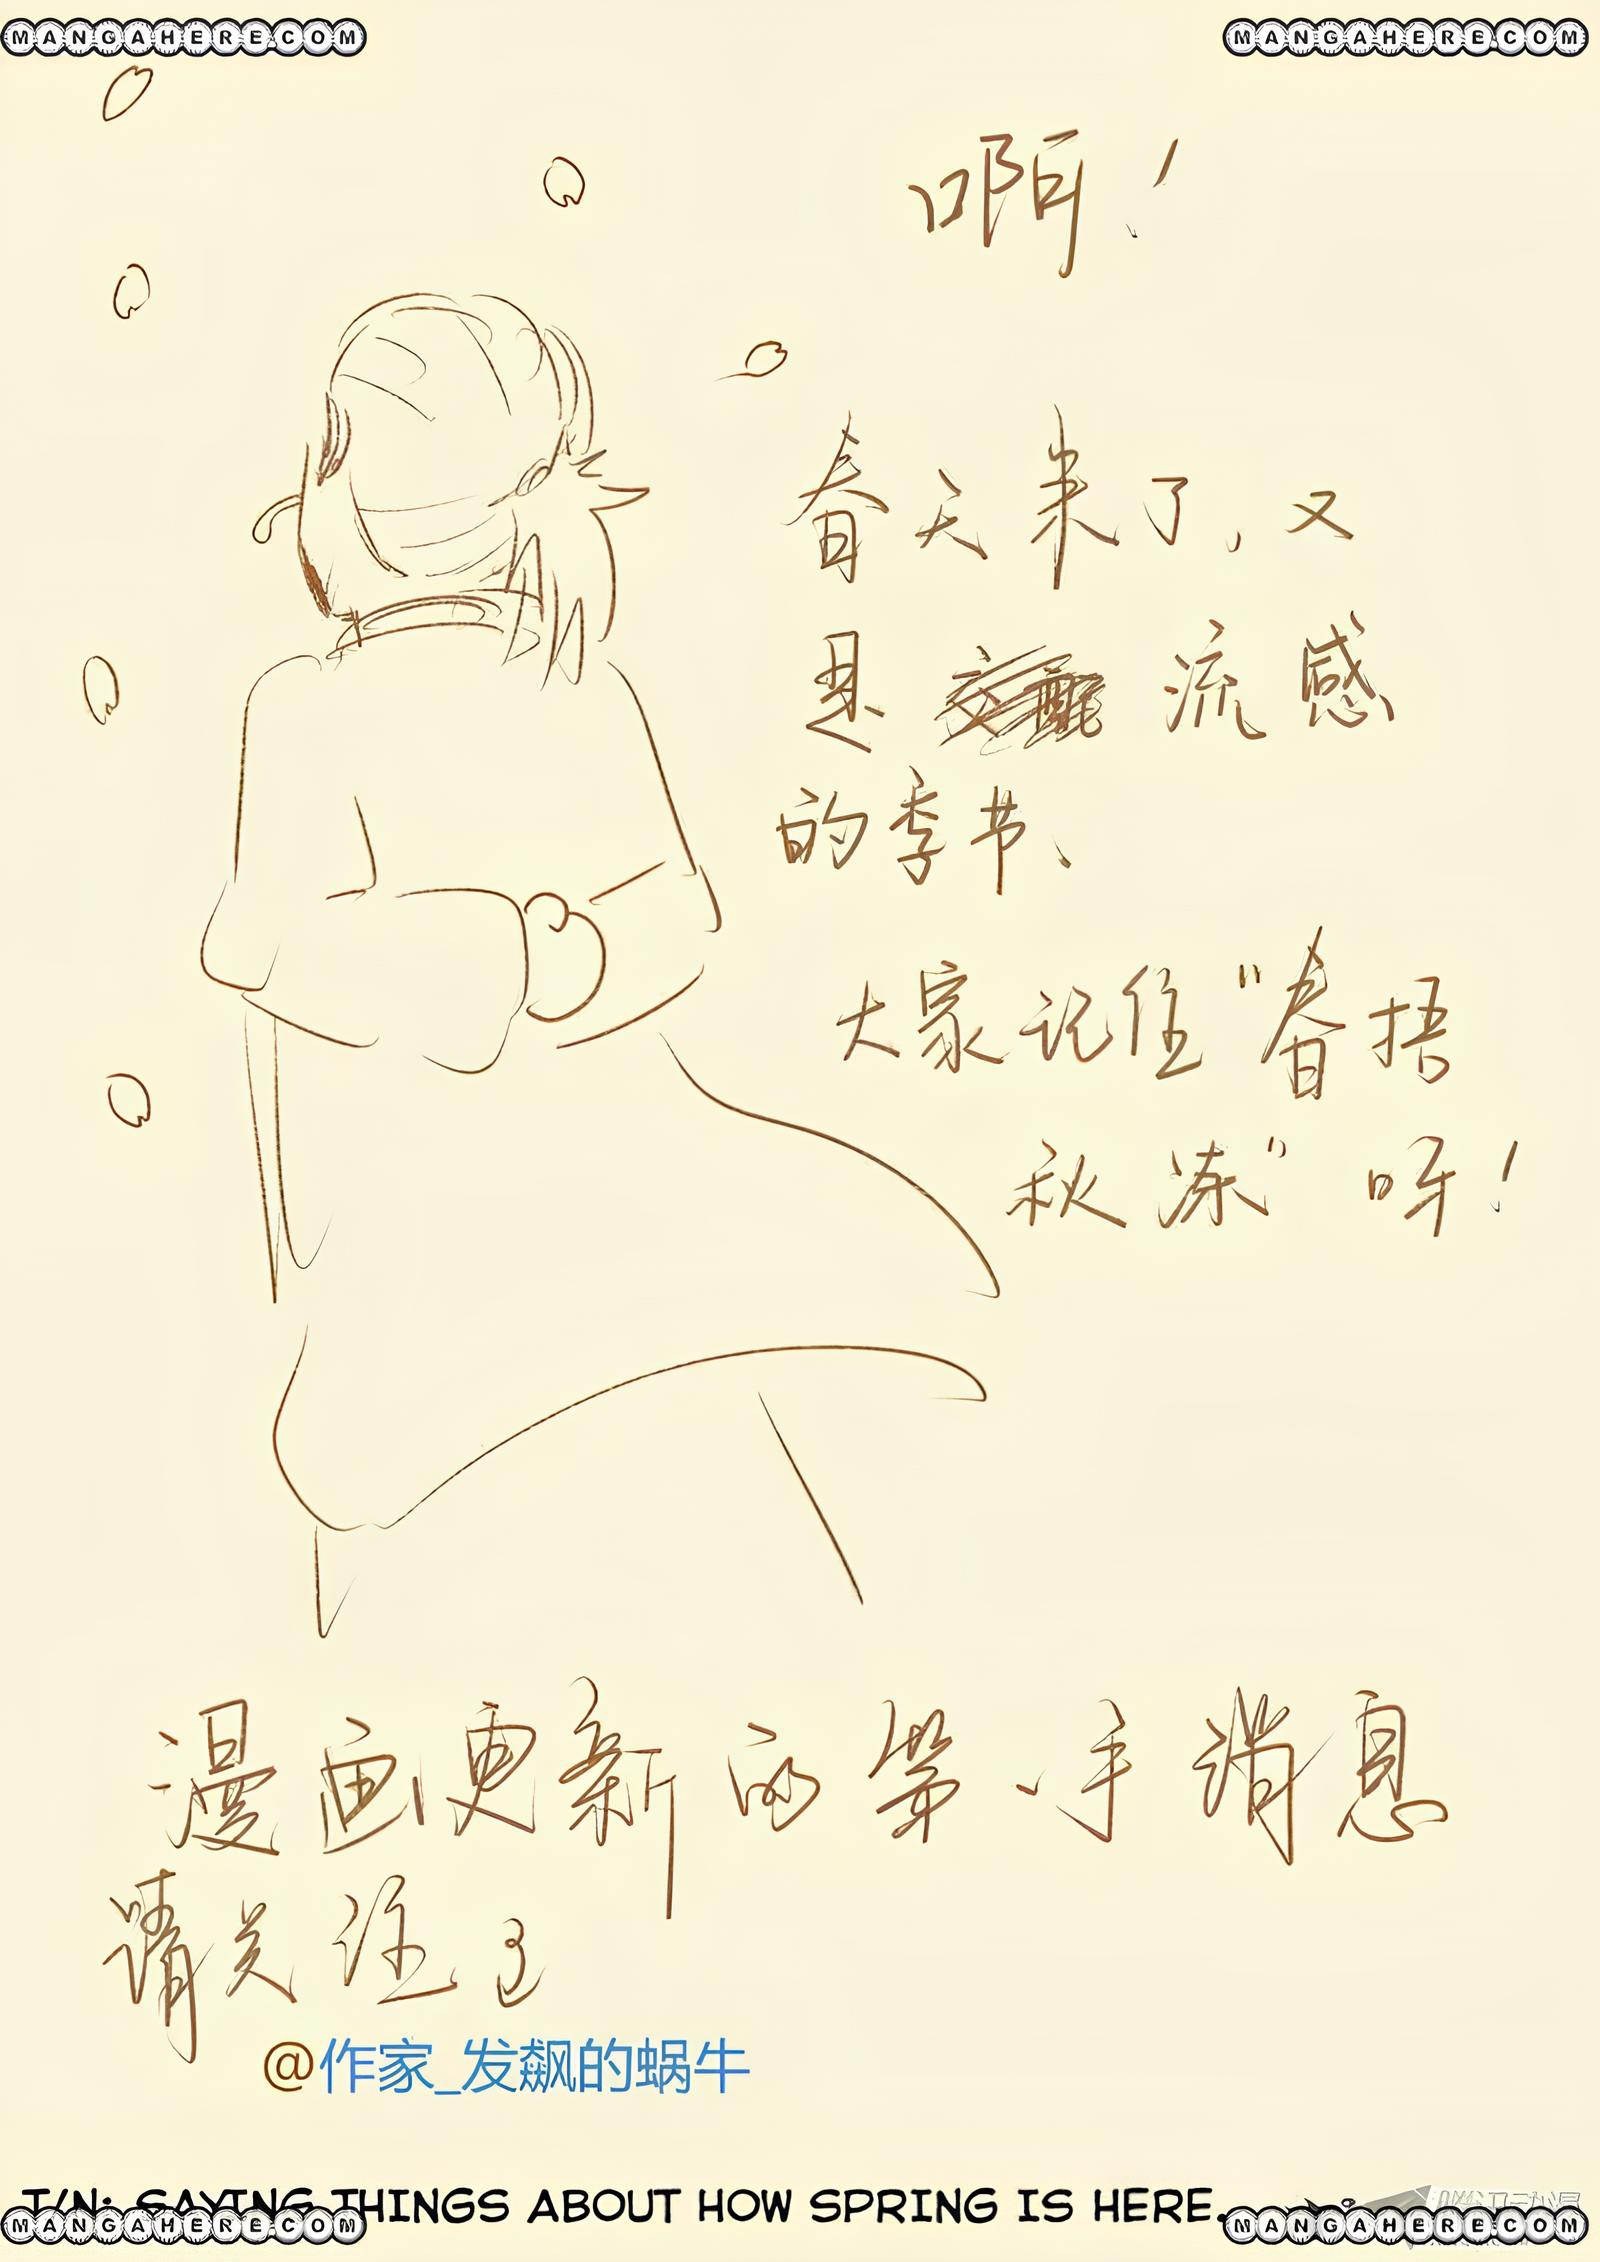 MANGAHERE.COM
MANGAHERE.COM
啊！
春天来了，又
是交配流感
的季节、
大家记住“春捂
秋冻”呀！
漫画更新的第一手消息
请关注
@作家_发飙的蜗牛
T/N: SAYING THINGS ABOUT HOW SPRING IS HERE.
MANGAHERE.COM
MANGAHERE.COM